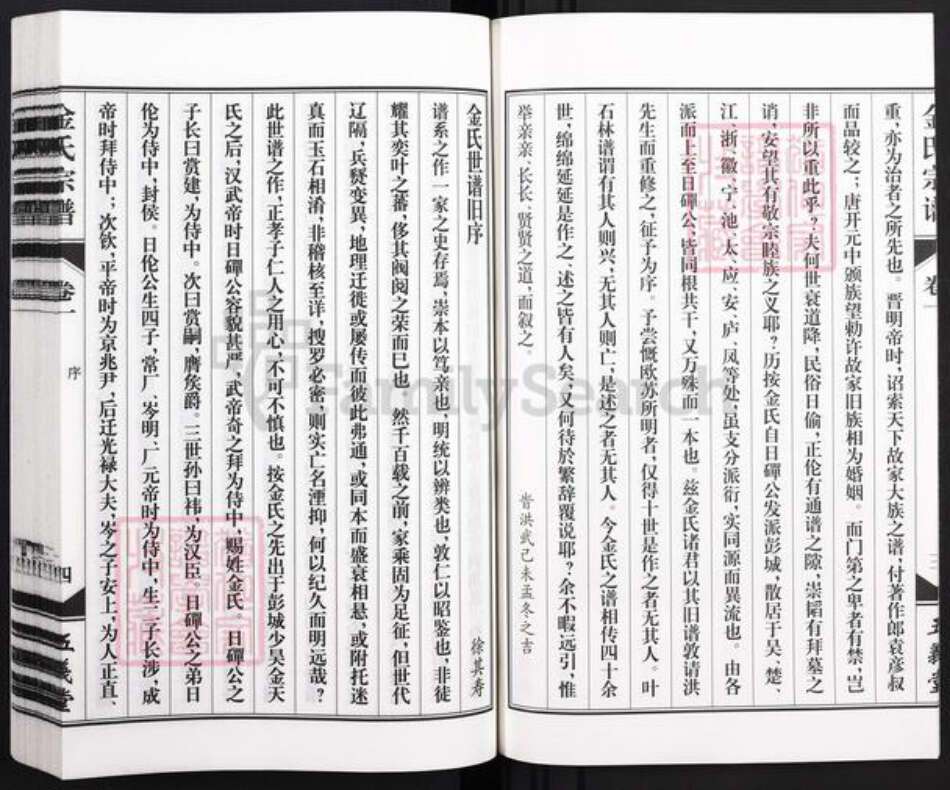 重，亦为治者之所先也。晋明帝时，诏索天下故家大族之谱，付著作郎袁彦叔
而品较之；唐开元中颁族望勅许故家旧族相为婚姻。而门第之卑者有禁，岂
非所以重此乎？夫何世衰道降，民俗日偷，正伦有通谱之隙，崇韬有拜墓之
诮，安望其有敬宗睦族之义耶？历按金氏自日磾公发派彭城，散居于吴、楚、
江、浙、徽、宁、池、太、应、安、庐、凤等处，虽支分派衍，实同源而异流也。由各
派而上至日磾公，皆同根共干，又万殊而一本也。兹金氏诸君以其旧谱敦请洪
先生而重修之，征予为序。予尝慨欧苏所明者，仅得十世是作之者无其人。叶
石林谱谓有其人则兴，无其人则亡，是述之者无其人。今金氏之谱相传四十余
世，绵绵延延是作之、述之皆有人矣，又何待於繁辞覆说耶？余不暇远引，惟
举亲亲、长长、贤贤之道，而叙之。
旹洪武己未孟冬之吉
金氏宗谱
卷一
三
五义堂
金氏世谱旧序
徐其寿
谱系之作一家之史存焉，崇本以笃亲也，明统以辨类也，敦仁以昭鉴也，非徒
耀其奕叶之蕃，侈其阀阅之荣而巳也。然千百载之前，家乘固为足征，但世代
辽隔，兵燹变异，地理迁徙或屡传而彼此弗通，或同本而盛衰相悬，或附托迷
真而玉石相淆，非稽核至详，搜罗必密，则实亡名湮抑，何以纪久而明远哉？
此世谱之作，正孝子仁人之用心，不可不慎也。按金氏之先出于彭城少昊金天
氏之后，汉武帝时日磾公容貌甚严，武帝奇之拜为侍中，赐姓金氏。日磾公之
子长曰赏建，为侍中。次曰赏嗣，膺矦爵。三世孙曰祎，为汉臣。日磾公之弟日
伦为侍中，封侯。日伦公生四子，常厂、岑明、厂元帝时为侍中，生二子长涉，成
帝时拜侍中；次钦，平帝时为京兆尹，后迁光禄大夫，岑之子安上，为人正直、
金氏宗谱
卷一
序
四
五义堂
FamilySearch